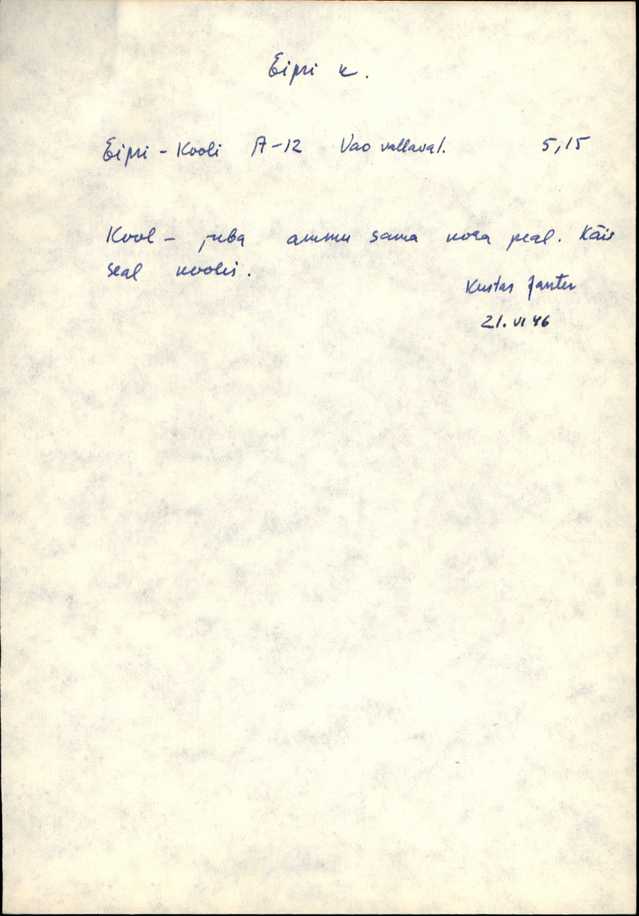 Eipri k.
Eipri - Kooli A-12 Vao vallaval. 5,15
Kool - juba ammu sama koha peal. Käis
seal koolis.
Kustas
21. VI 46